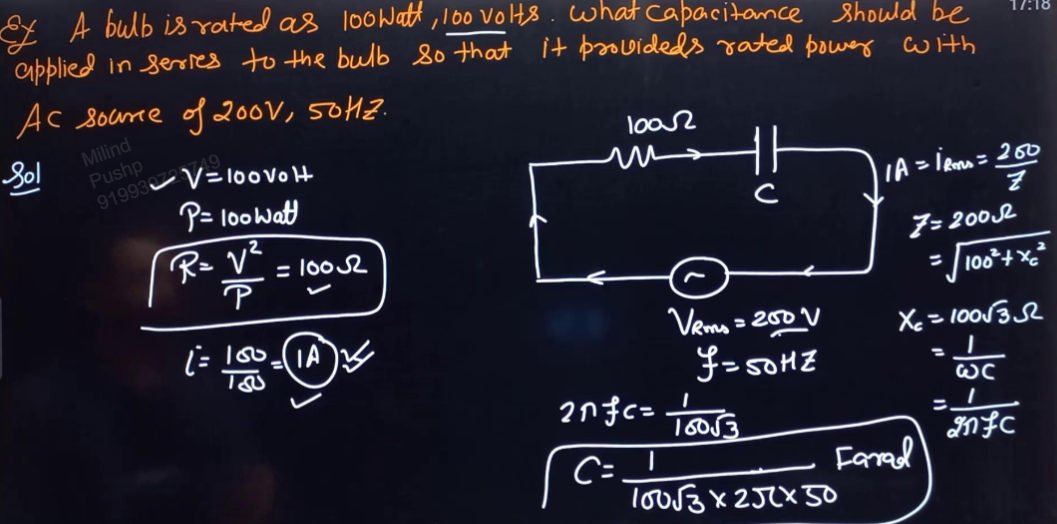 Ex A bulb is rated as 100 Watt, 100 volts. What capacitance should be
applied in series to the bulb so that it provideds rated power with
AC source of 200V, 50HZ.
17:18
Sol
Milind
Pushp
V = 100 Volt
P = 100 Watt
R = V²/P = 100Ω
i = 100/100 = 1A
100Ω
C
~
VRms = 200 V
f = 50 HZ
1A = iRms = 200/Z
Z = 200Ω
= √(100² + Xc²)
Xc = 100√3 Ω
= 1/ωC
= 1/2πfC
2πfC = 1/100√3
C = 1/(100√3 × 2π × 50) Farad